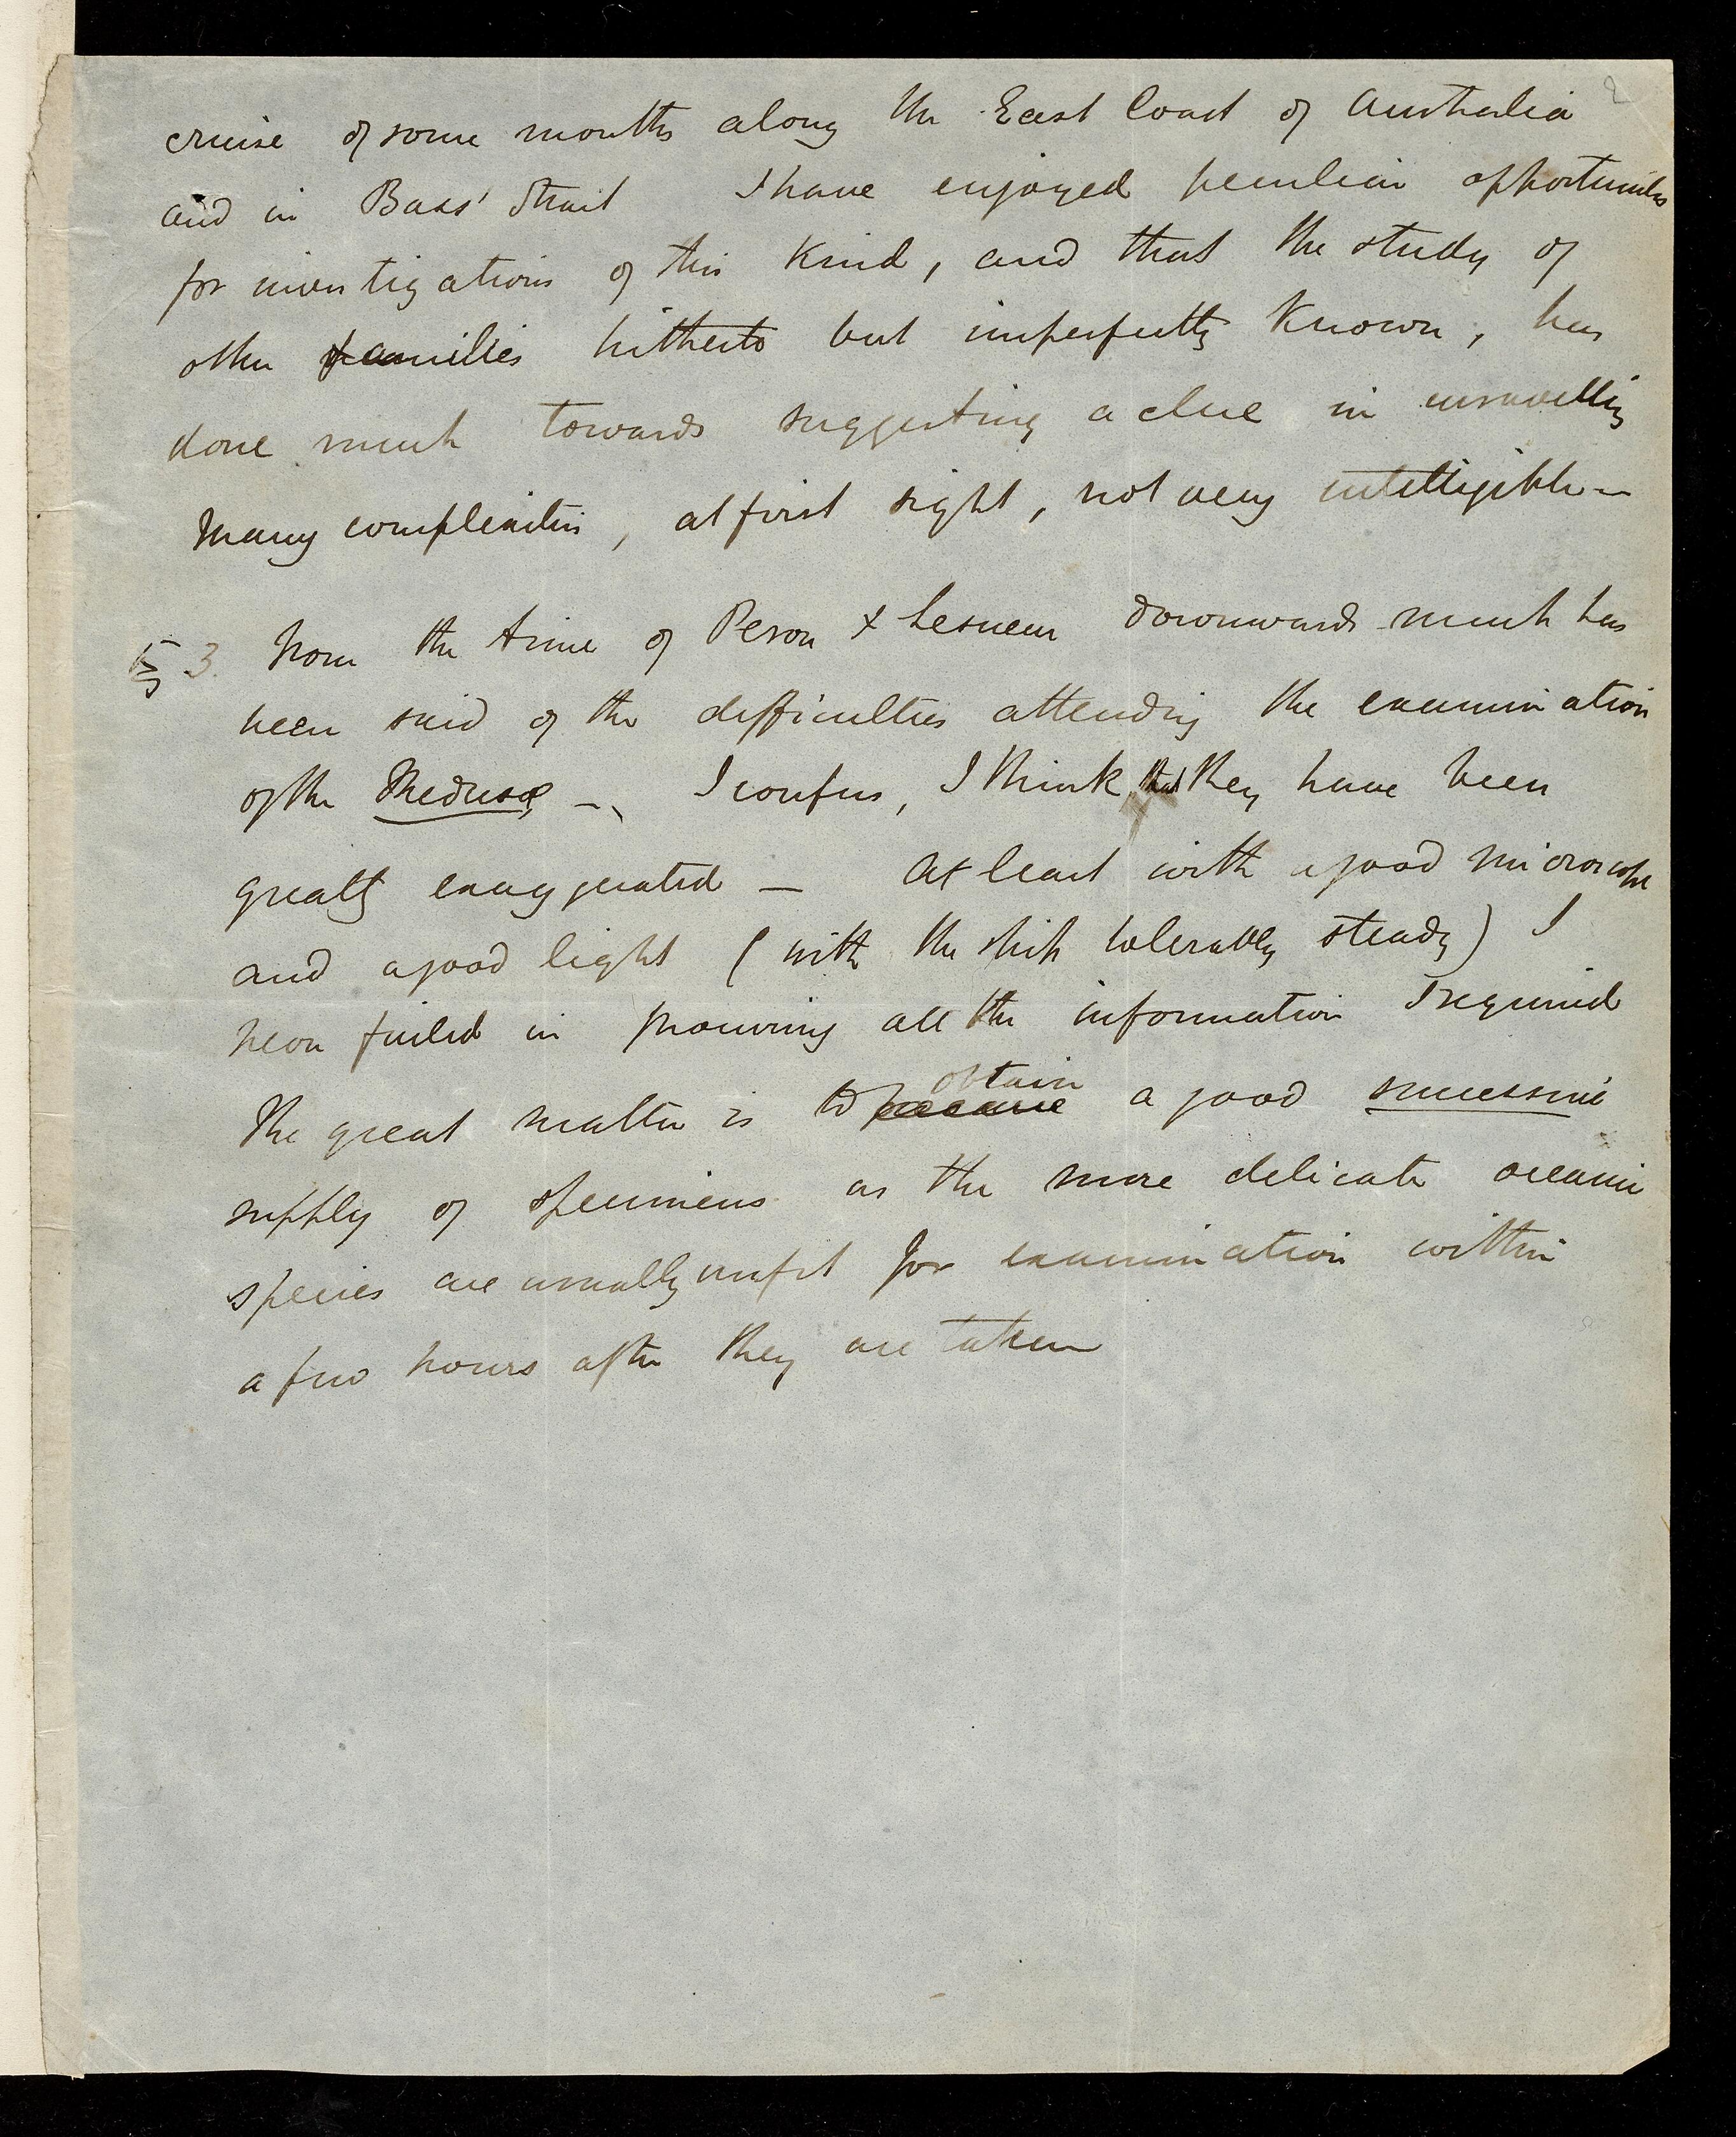 2
cruise of some months along the East Coast of Australia
and in Bass' Strait I have enjoyed peculiar opportunities
for investigations of this kind, and that the study of
other families hitherto but imperfectly known, has
done much towards suggesting a clue in unravelling
many complexities, at first sight, not very intelligible—
§ 3. From the time of Peron & Lesueur downwards much has
been said of the difficulties attending the examination
of the Medusæ — I confess, I think that they have been
greatly exaggerated — At least with a good microscope
and a good light (with the ship tolerably steady) I
never failed in procuring all the information I required
obtain
The great matter is to procure a good successive
supply of specimens as the more delicate oceanic
species are usually unfit for examination within
a few hours after they are taken